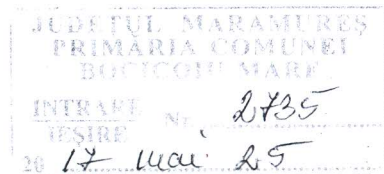 JUDEŢUL MARAMUREŞ
PRIMĂRIA COMUNEI
BOCICOIU MARE
INTRARE
IEŞIRE
Nr. 2735
2017 mai 25